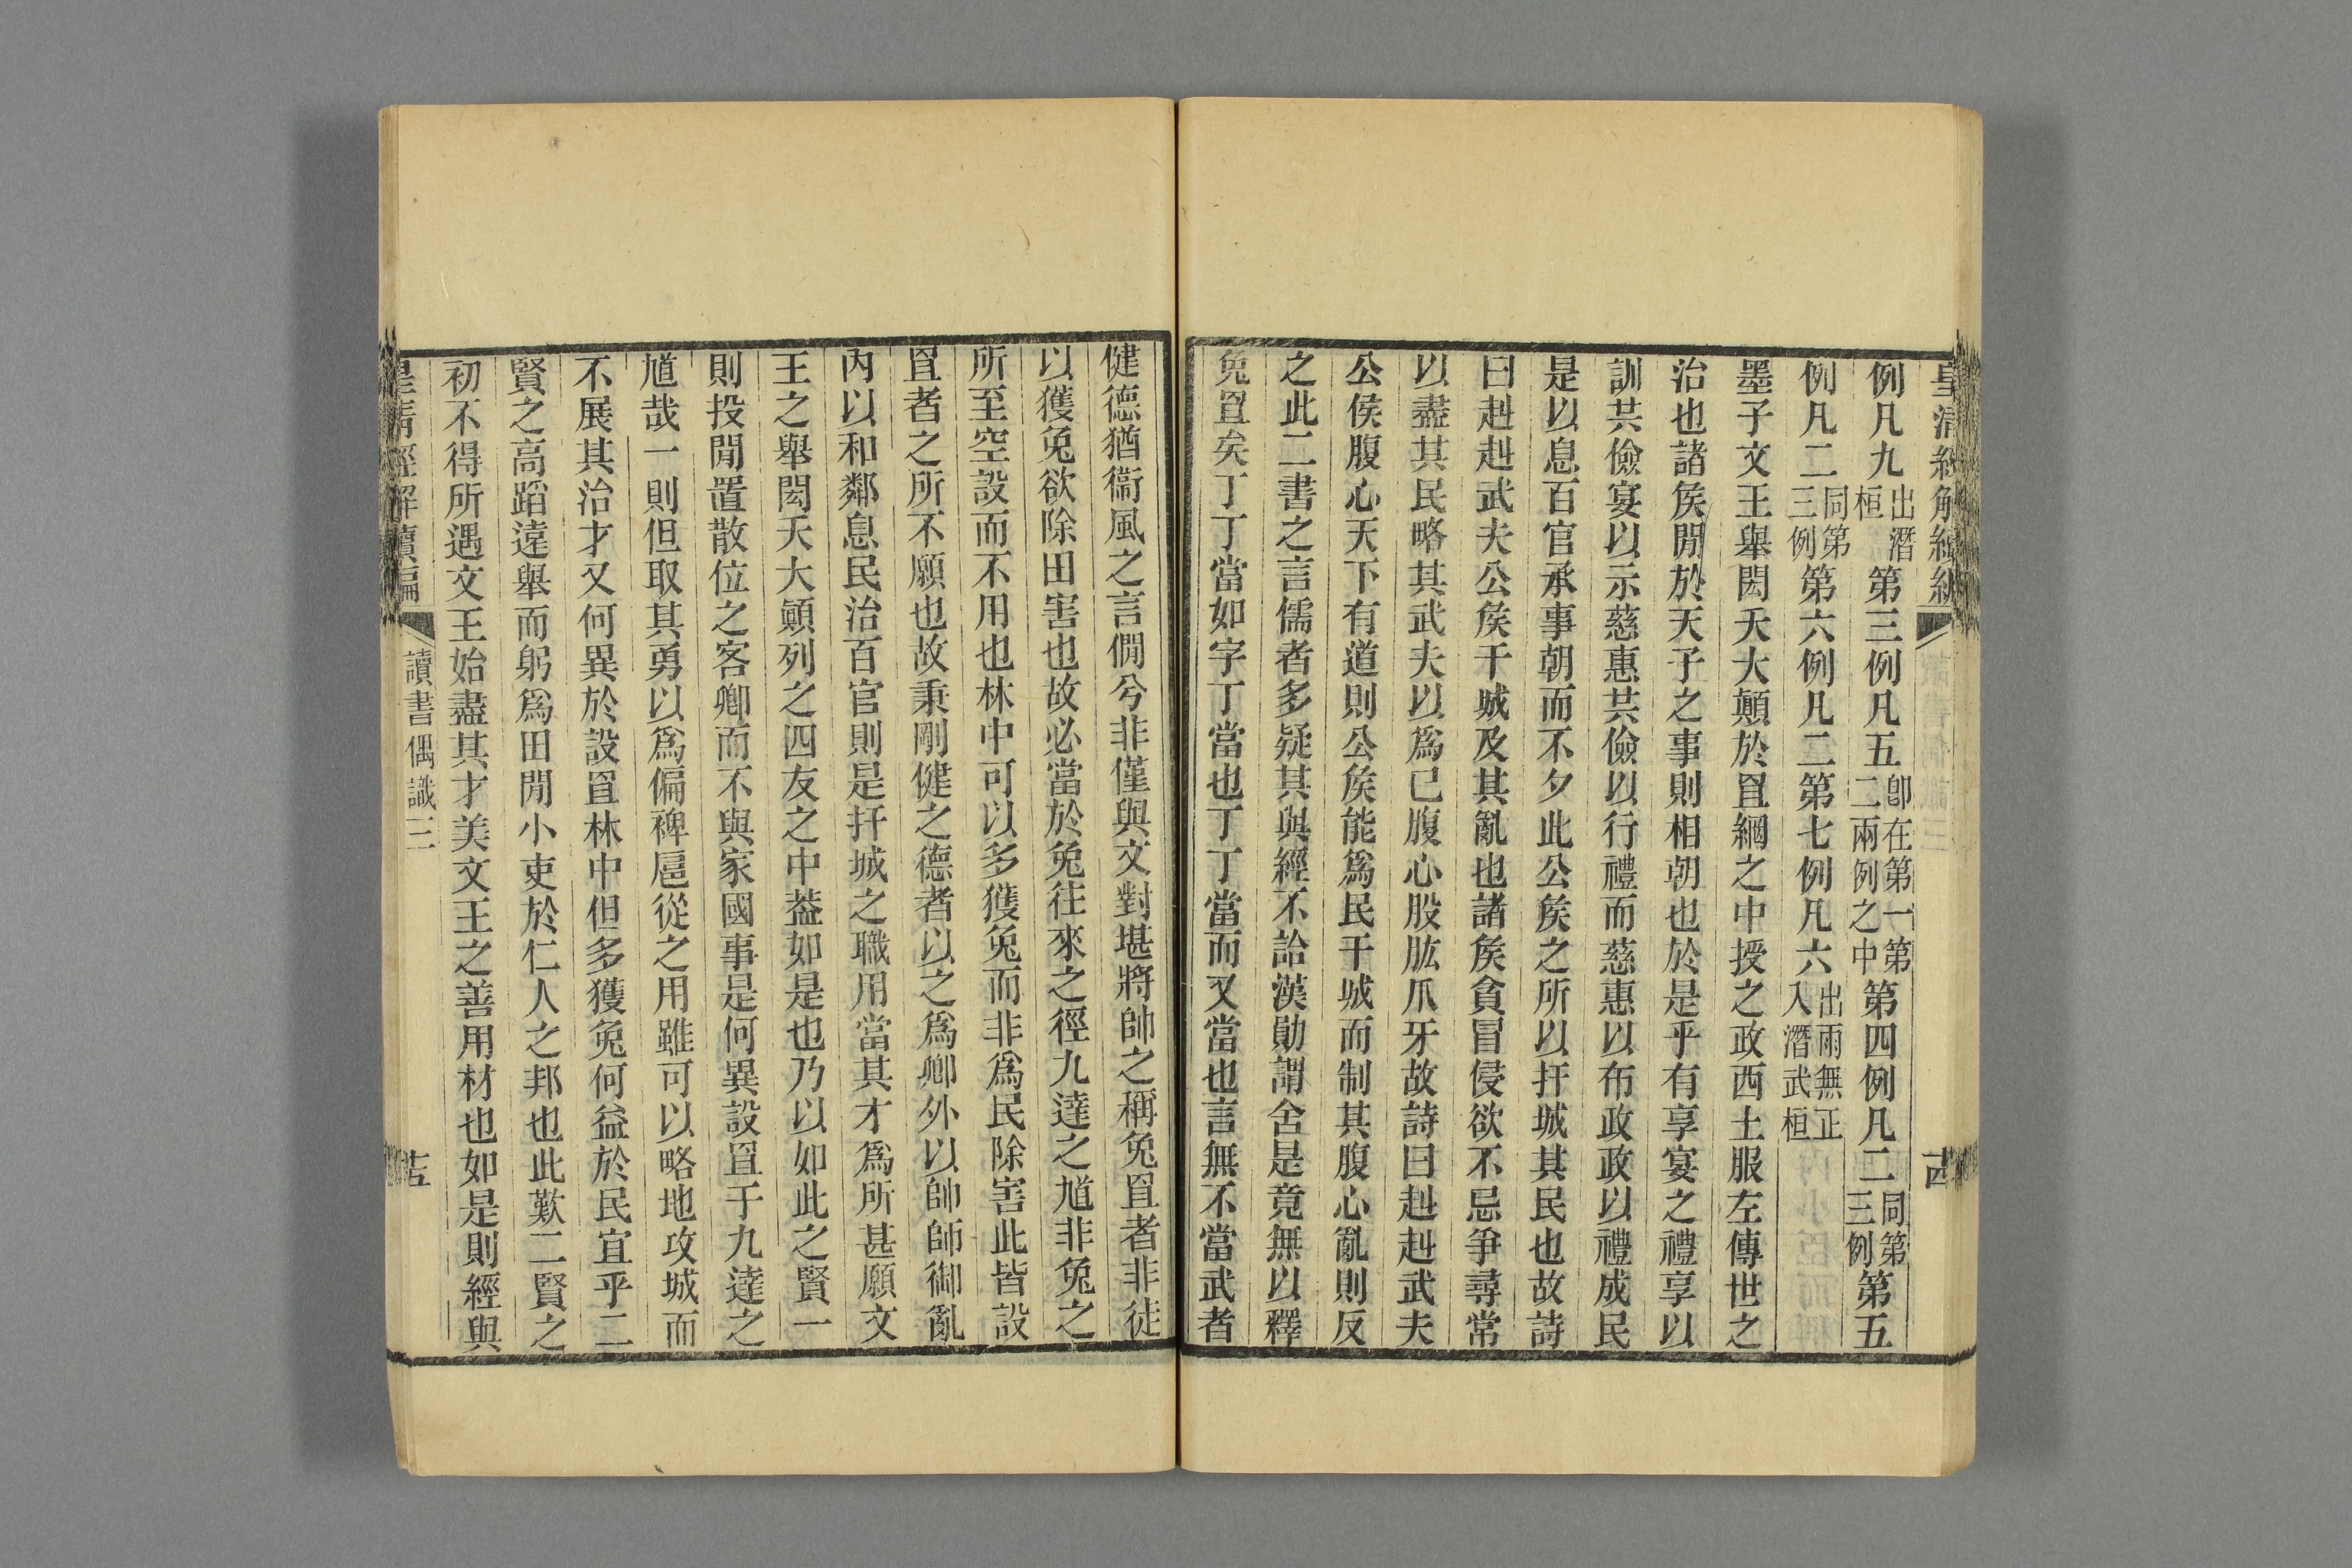 皇清經解續編
例凡九出潛桓第三例凡五卽在第一第二兩例之中第四例凡二同第三例第五
例凡二同第三例第六例凡二第七例凡六出雨無正入潛武桓
墨子文王舉閎夭大顛於罝網之中授之政西土服左傳世之
治也諸矦閒於天子之事則相朝也於是乎有享宴之禮享以
訓共儉宴以示慈惠共儉以行禮而慈惠以布政政以禮成民
是以息百官承事朝而不夕此公矦之所以扞城其民也故詩
曰赳赳武夫公矦干城及其亂也諸矦貪冒侵欲不忌爭尋常
以盡其民略其武夫以爲己腹心股肱爪牙故詩曰赳赳武夫
公侯腹心天下有道則公矦能爲民干城而制其腹心亂則反
之此二書之言儒者多疑其與經不詥漢勛謂舍是竟無以釋
兔罝矣丁丁當如字丁當也丁丁當而又當也言無不當武者
健德猶衞風之言僩兮非僅與文對堪將帥之稱兔罝者非徒
以獲兔欲除田害也故必當於兔往來之徑九達之馗非兔之
所至空設而不用也林中可以多獲兔而非爲民除害此皆設
罝者之所不願也故秉剛健之德者以之爲卿外以帥師禦亂
內以和鄰息民治百官則是扞城之職用當其才爲所甚願文
王之舉閎夭大顚列之四友之中葢如是也乃以如此之賢一
則投閒置散位之客卿而不與家國事是何異設罝于九達之
馗哉一則但取其勇以爲偏裨扈從之用雖可以略地攻城而
不展其治才又何異於設罝林中但多獲兔何益於民宜乎二
賢之高蹈遠舉而躬爲田閒小吏於仁人之邦也此歎二賢之
初不得所遇文王始盡其才美文王之善用材也如是則經與
皇清經解續編
讀書偶識三